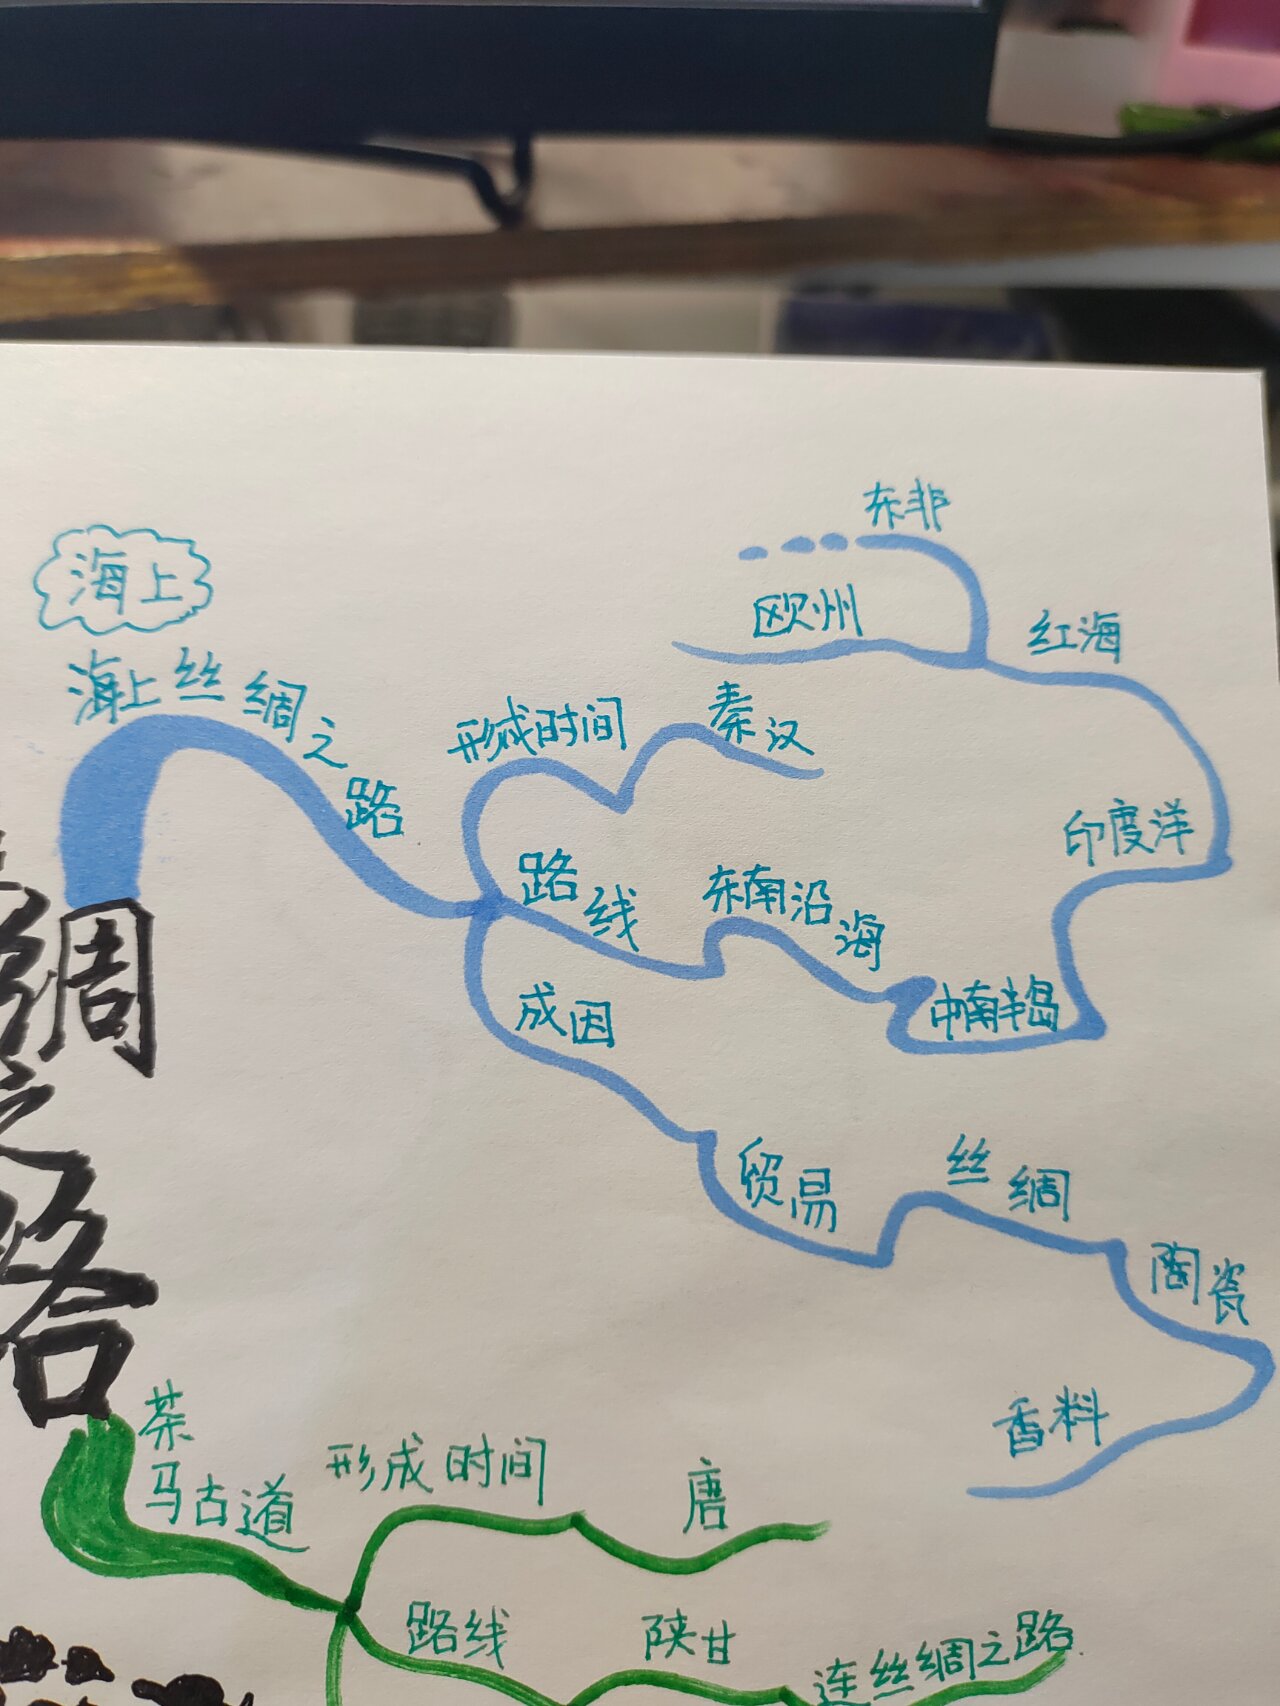 海上
海上丝绸之路
形成时间
秦汉
路线
东南沿海
中南半岛
印度洋
红海
东非
欧州
成因
贸易
丝绸
陶瓷
香料
绸之路
茶马古道
形成时间
唐
路线
陕甘
连丝绸之路